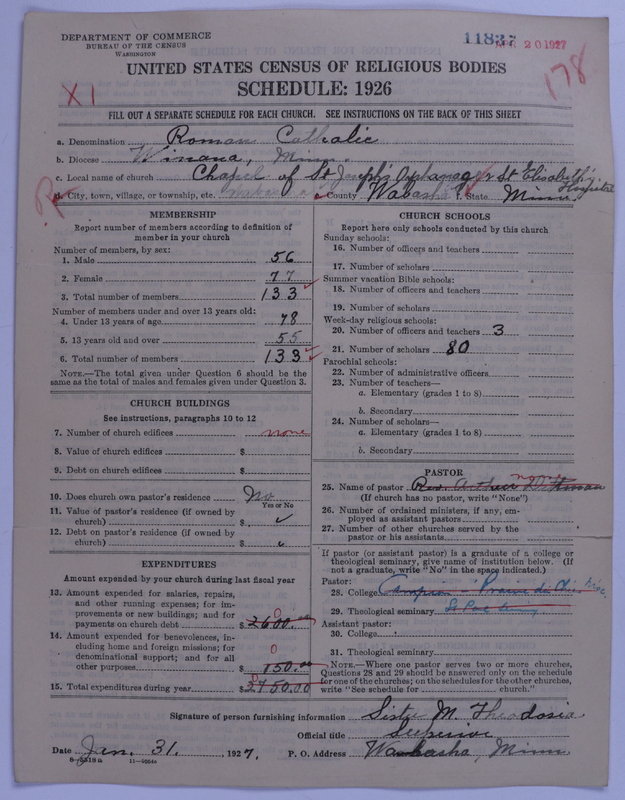 DEPARTMENT OF COMMERCE
BUREAU OF THE CENSUS
WASHINGTON
11837
APR 20 1927
178
X1
UNITED STATES CENSUS OF RELIGIOUS BODIES
SCHEDULE: 1926
FILL OUT A SEPARATE SCHEDULE FOR EACH CHURCH. SEE INSTRUCTIONS ON THE BACK OF THIS SHEET
a. Denomination Roman Catholic
b. Diocese Winona, Minn.
c. Local name of church Chapel of St Joseph's Orphanage & St Elizabeth's Hospital
d. City, town, village, or township, etc. Wabasha e. County Wabasha f. State Minn.
MEMBERSHIP
Report number of members according to definition of member in your church
Number of members, by sex:
1. Male 56
2. Female 77
3. Total number of members 133
Number of members under and over 13 years old:
4. Under 13 years of age 78
5. 13 years old and over 55
6. Total number of members 133
NOTE.—The total given under Question 6 should be the same as the total of males and females given under Question 3.
CHURCH BUILDINGS
See instructions, paragraphs 10 to 12
7. Number of church edifices none
8. Value of church edifices $
9. Debt on church edifices $
10. Does church own pastor's residence No
Yes or No
11. Value of pastor's residence (if owned by church) $
12. Debt on pastor's residence (if owned by church) $
EXPENDITURES
Amount expended by your church during last fiscal year
13. Amount expended for salaries, repairs, and other running expenses; for improvements on new buildings; and for payments on church debt $2600.00 0
14. Amount expended for benevolences, including home and foreign missions; for denominational support; and for all other purposes $150.00 0
15. Total expenditures during year $2750.00 0
CHURCH SCHOOLS
Report here only schools conducted by this church
Sunday schools:
16. Number of officers and teachers
17. Number of scholars
Summer vacation Bible schools:
18. Number of officers and teachers
19. Number of scholars
Week-day religious schools:
20. Number of officers and teachers 3
21. Number of scholars 80
Parochial schools:
22. Number of administrative officers
23. Number of teachers—
a. Elementary (grades 1 to 8)
b. Secondary
24. Number of scholars—
a. Elementary (grades 1 to 8)
b. Secondary
PASTOR
25. Name of pastor Rev. Arthur none
(If church has no pastor, write "None")
26. Number of ordained ministers, if any, employed as assistant pastors
27. Number of other churches served by the pastor or his assistants
If pastor (or assistant pastor) is a graduate of a college or theological seminary, give name of institution below. (If not a graduate, write "No" in the space indicated.)
Pastor:
28. College Campion - Prairie du Chien, Wisc.
29. Theological seminary St Paul
Assistant pastor:
30. College
31. Theological seminary
NOTE.—Where one pastor serves two or more churches, Questions 28 and 29 should be answered only on the schedule for one of the churches; on the schedules for the other churches, write "See schedule for church."
Signature of person furnishing information Sister M. Theodosia
Official title Superior
Date Jan. 31. 1927. P. O. Address Wabasha, Minn.